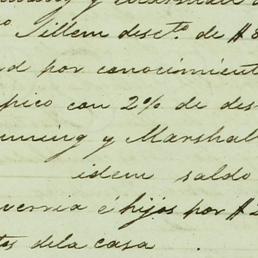 y Marshall
Tillem descto. de $8
por conocimient
pico con 2% de des
nning y Marshal
idem saldo
verria é hijos por $2
tos dela casa